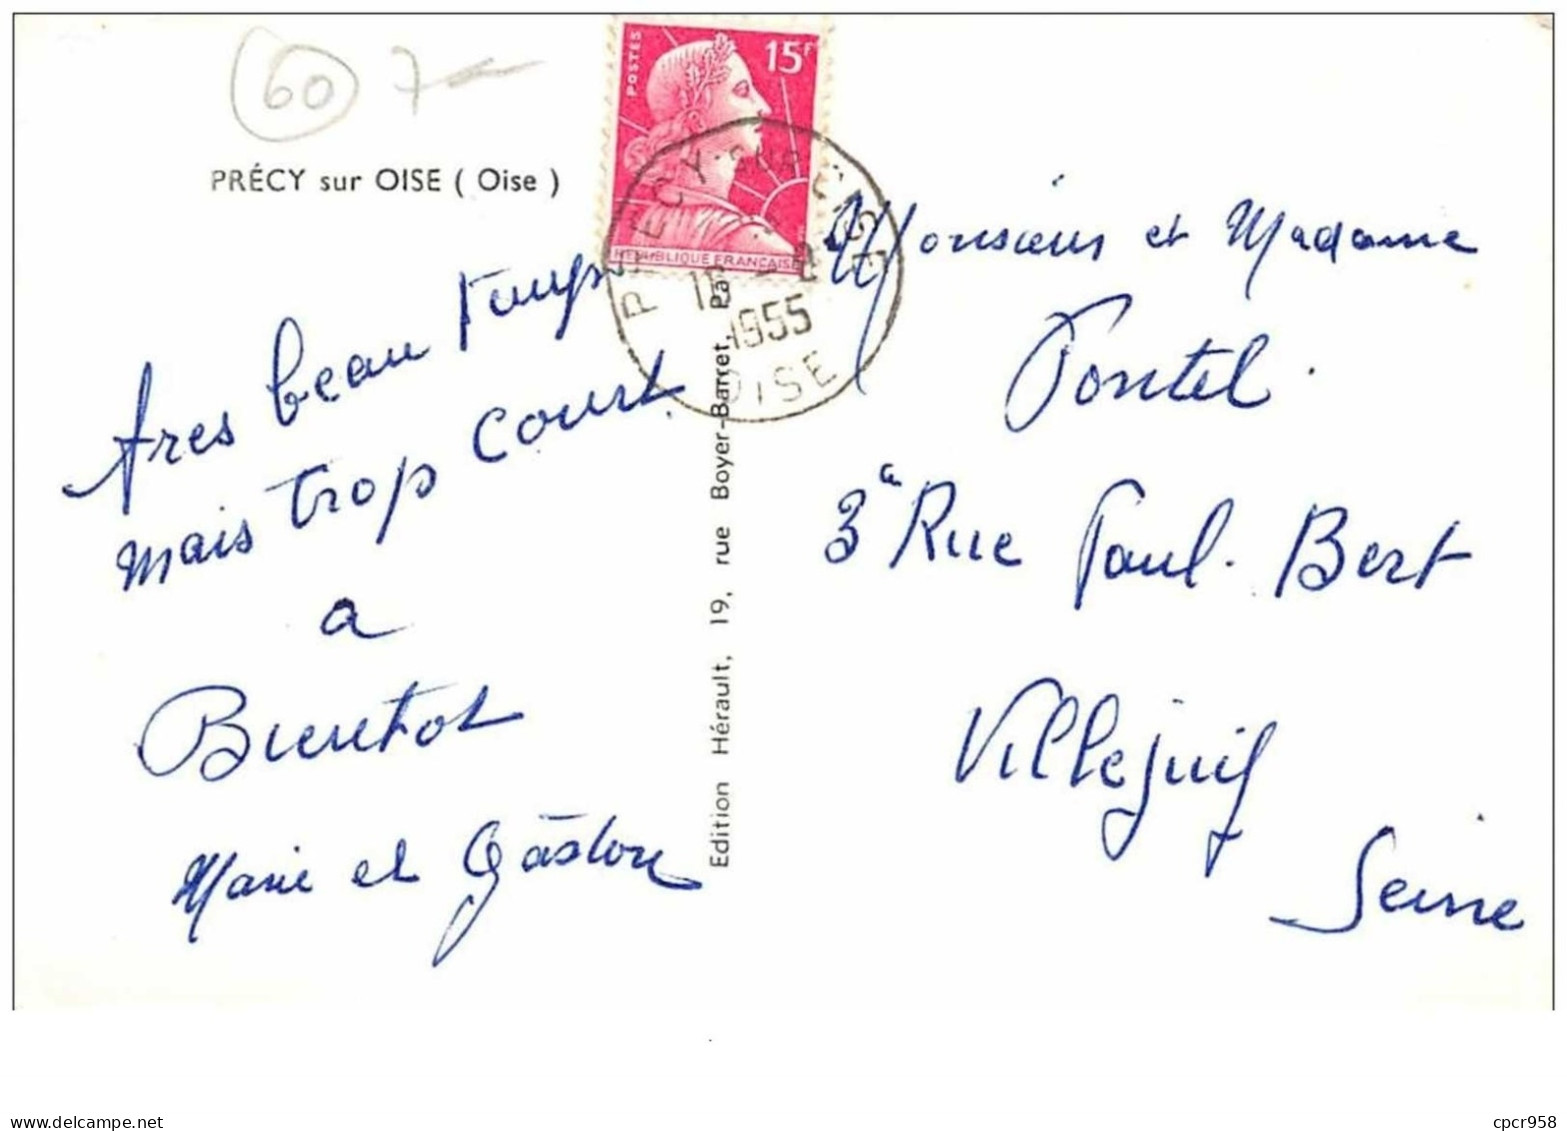 60 7
PRÉCY sur OISE ( Oise )
POSTES
15F
REPUBLIQUE FRANCAISE
PRECY-SUR-OISE
16 -8
1955
OISE
tres beau temps
mais trop court
a
Bientot
Marie et Gaston
Edition Hérault, 19, rue Boyer-Barret, Pa
Monsieur et Madame
Pontel.
3a Rue Paul-Bert
Villejuif
Seine
delcampe.net
cpcr958